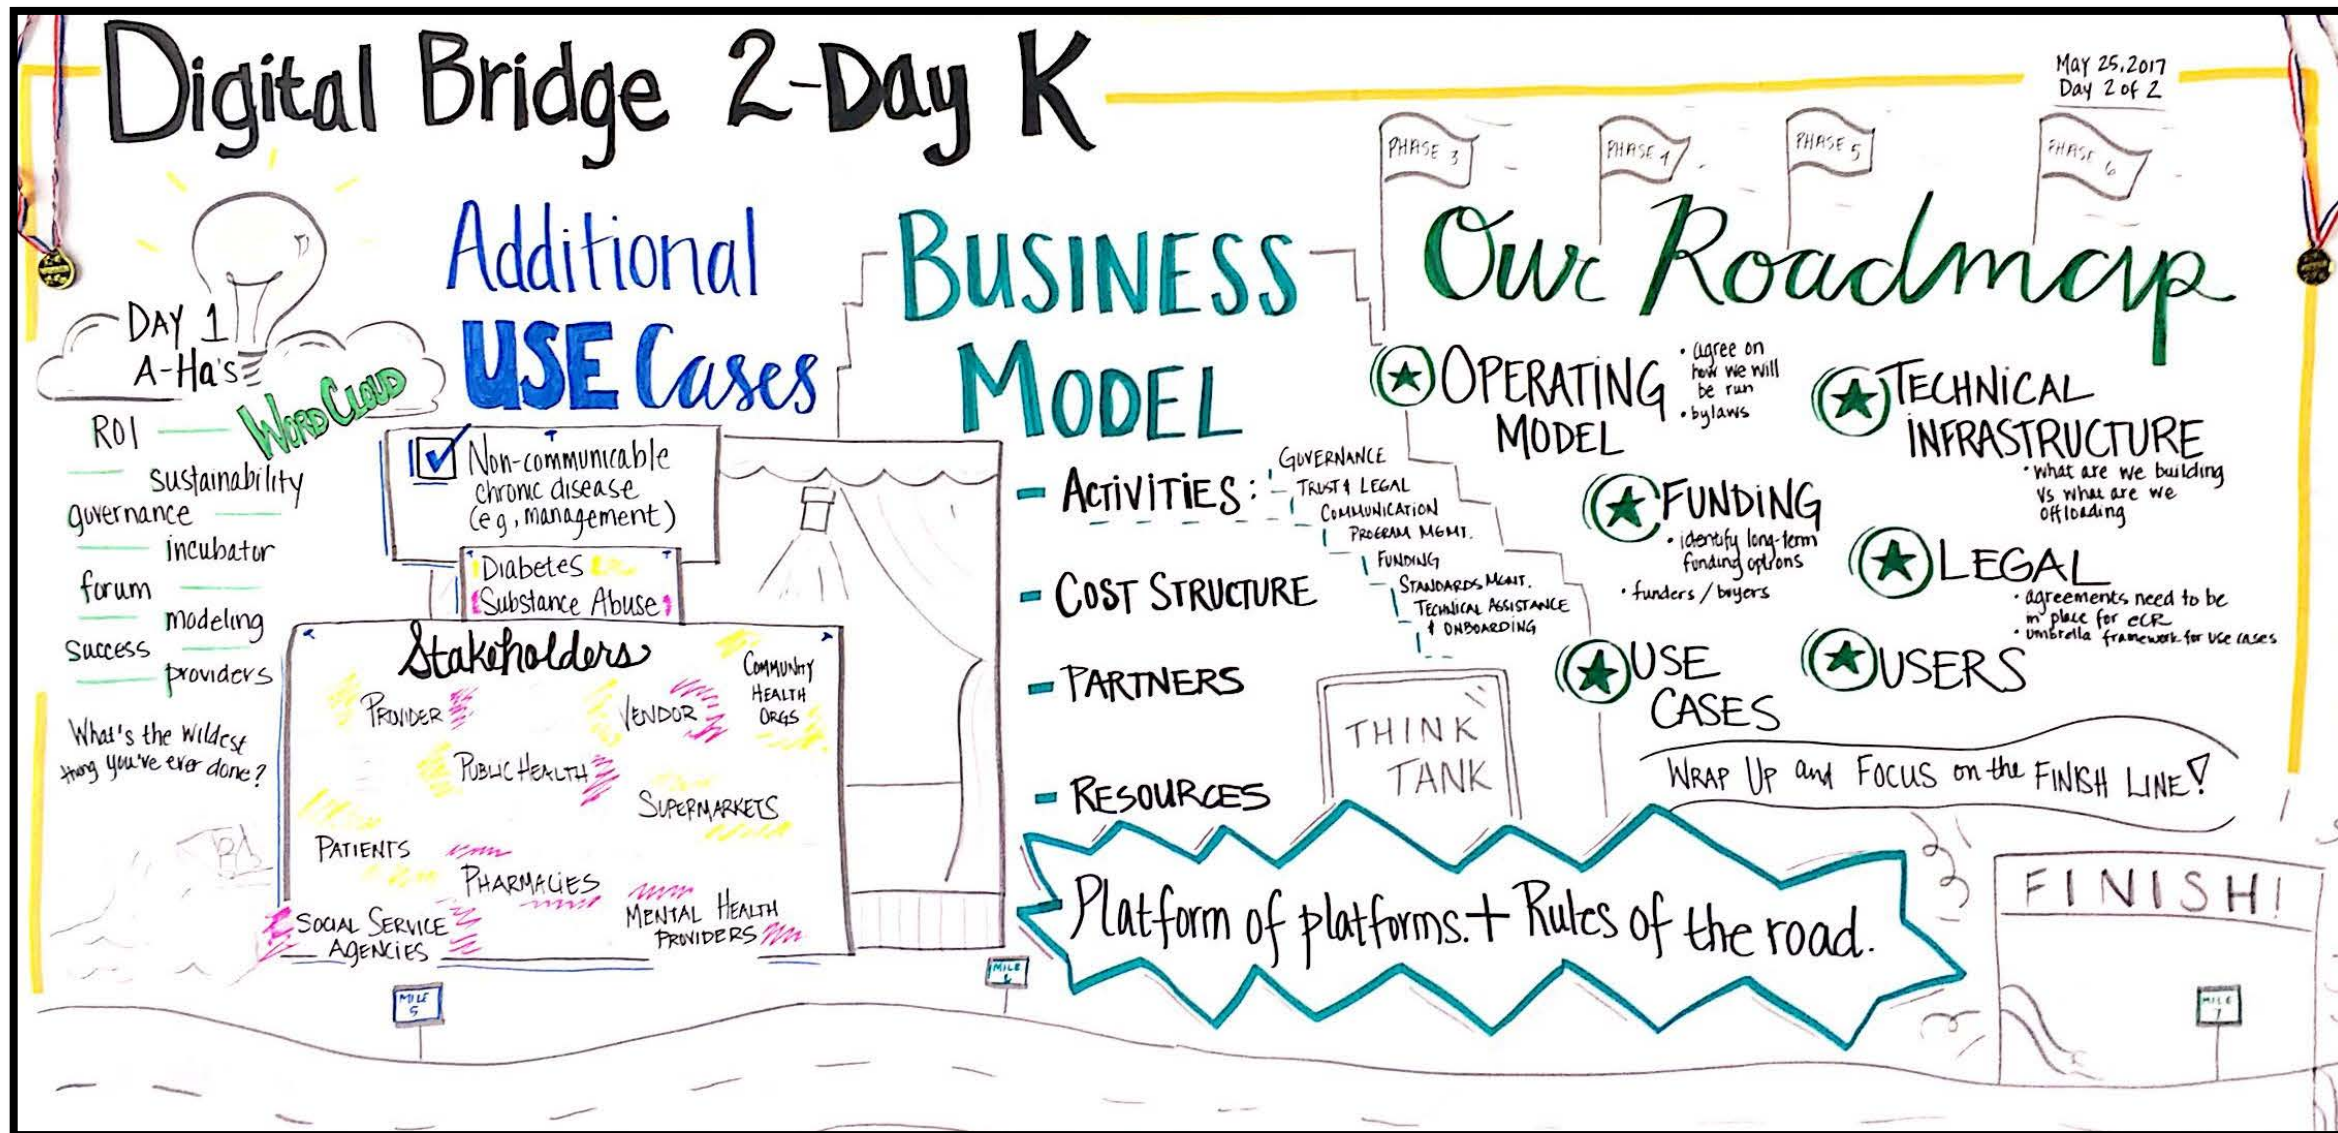 Digital Bridge 2-Day K
May 25, 2017
Day 2 of 2
DAY 1
A-Ha's
WORD CLOUD
ROI
sustainability
governance
incubator
forum
modeling
success
providers
What's the wildest
thing you've ever done?
Additional
USE Cases
Non-communicable
chronic disease
(eg, management)
Diabetes
Substance Abuse
Stakeholders
PROVIDER
VENDOR
COMMUNITY
HEALTH
ORGS
PUBLIC HEALTH
SUPERMARKETS
PATIENTS
PHARMACIES
SOCIAL SERVICE
AGENCIES
MENTAL HEALTH
PROVIDERS
MILE
5
BUSINESS
MODEL
- ACTIVITIES:
GOVERNANCE
TRUST & LEGAL
COMMUNICATION
PROGRAM MGMT.
FUNDING
STANDARDS MGMT.
TECHNICAL ASSISTANCE
& ONBOARDING
- COST STRUCTURE
- PARTNERS
- RESOURCES
THINK
TANK
Platform of platforms. + Rules of the road.
MILE
6
PHASE 3
PHASE 4
PHASE 5
PHASE 6
Our Roadmap
OPERATING
MODEL
• agree on
how we will
be run
• bylaws
TECHNICAL
INFRASTRUCTURE
• what are we building
vs what are we
offloading
FUNDING
• identify long-term
funding options
• funders / buyers
LEGAL
• agreements need to be
in place for eCR
• umbrella framework for use cases
USE
CASES
USERS
WRAP UP and FOCUS on the FINISH LINE!
FINISH!
MILE
7